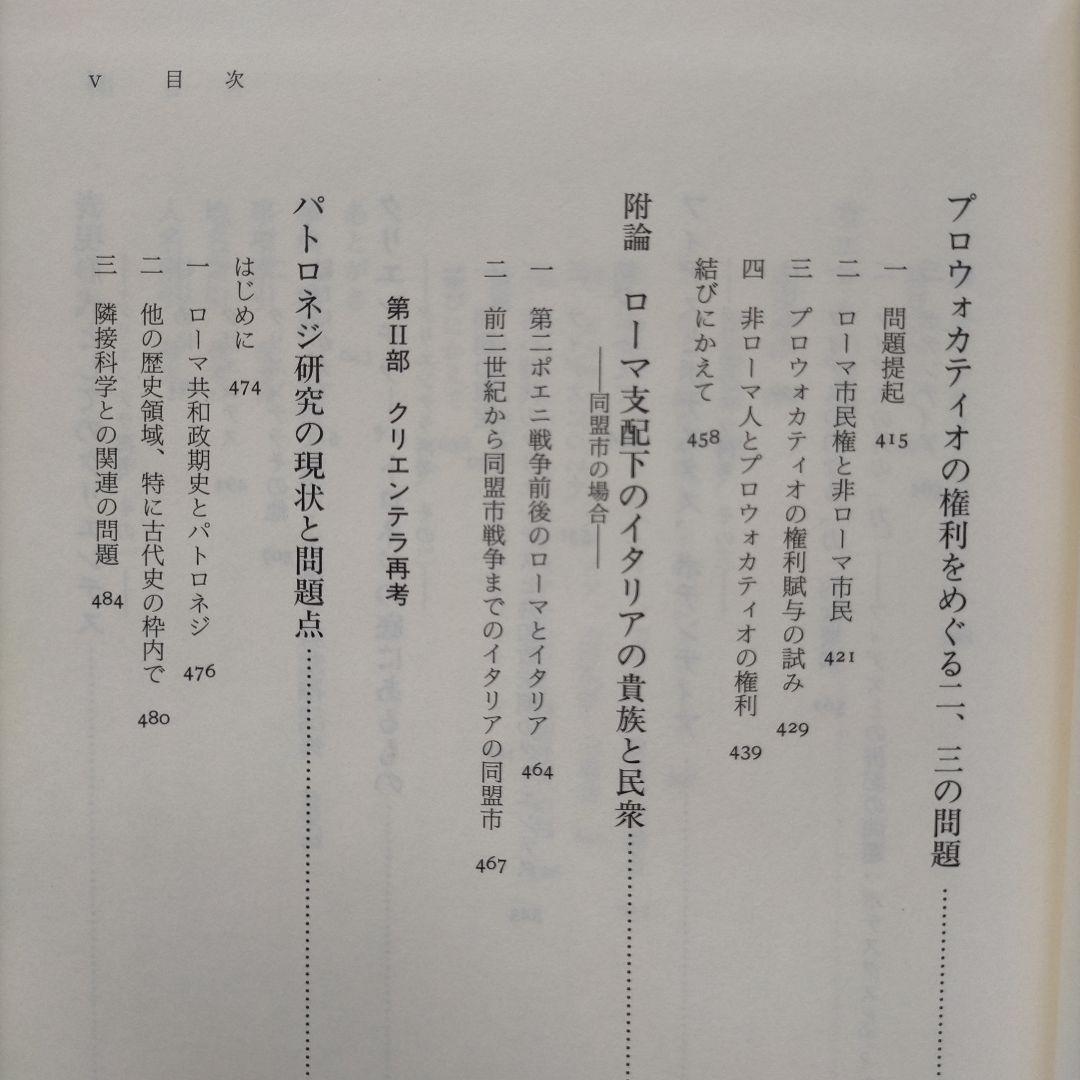 v 目次
プロウォカティオの権利をめぐる二、三の問題……
一 問題提起 415
二 ローマ市民権と非ローマ市民 421
三 プロウォカティオの権利賦与の試み 429
四 非ローマ人とプロウォカティオの権利 439
結びにかえて 458
附論 ローマ支配下のイタリアの貴族と民衆……
——同盟市の場合——
一 第二ポエニ戦争前後のローマとイタリア 464
二 前二世紀から同盟市戦争までのイタリアの同盟市 467
第II部 クリエンテラ再考
パトロネジ研究の現状と問題点……
はじめに 474
一 ローマ共和政期史とパトロネジ 476
二 他の歴史領域、特に古代史の枠内で 480
三 隣接科学との関連の問題 484